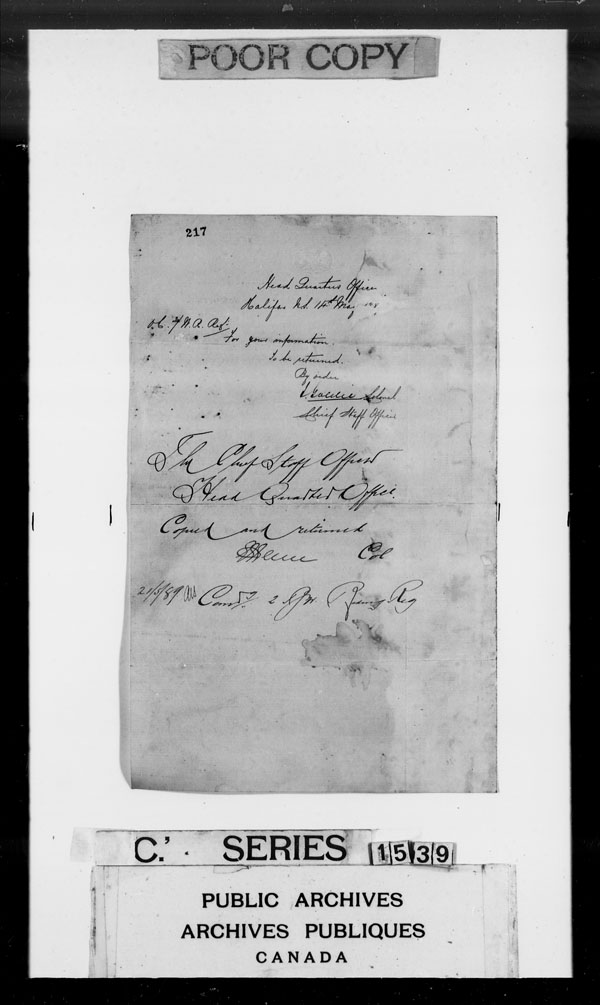 POOR COPY
217
Head Quarters Office
Halifax N.S. 14th May
For your information.
To be returned.
By order
Colonel
Chief Staff Officer
The Chief Staff Officer
Head Quarters Office.
Copied and returned
Col
21/5/89 Comd. 2
C. SERIES 1539
PUBLIC ARCHIVES
ARCHIVES PUBLIQUES
CANADA